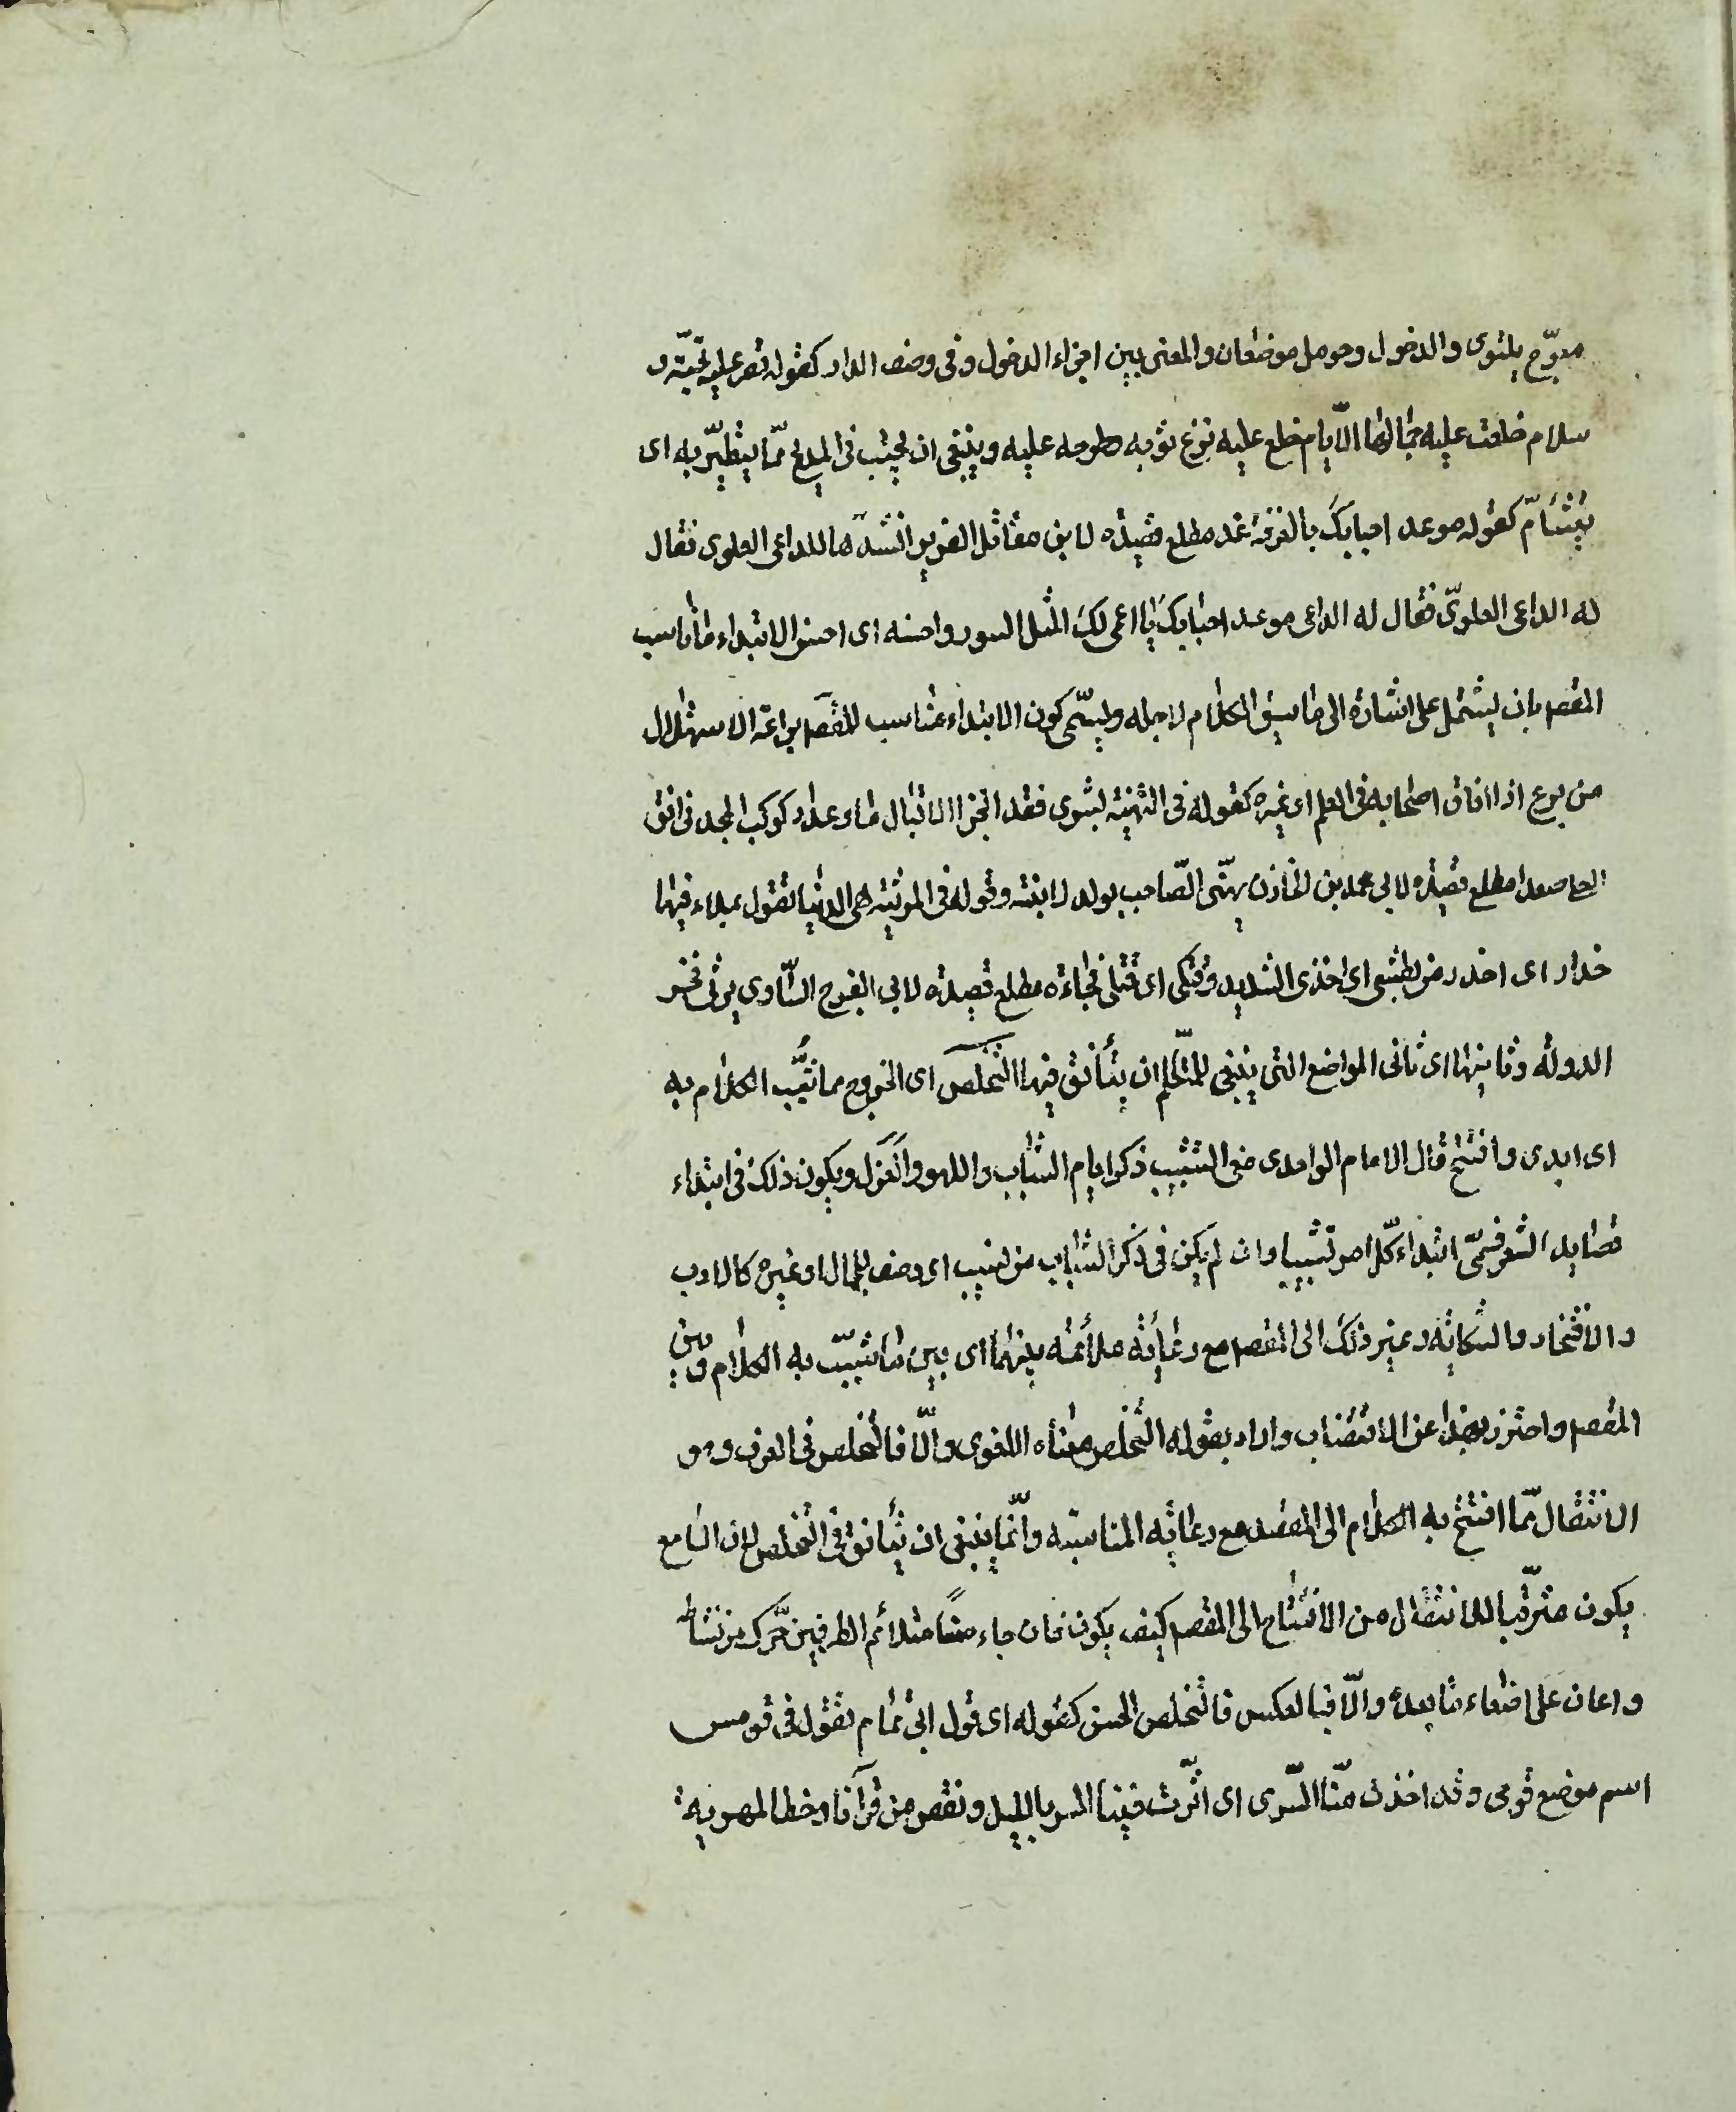 معوّج يلتوى والدخول وحومل موضعان والمعنى بين اجزاء الدخول وفى وصف الدار كقوله قصر عليه تحيّة و
سلام خلعت عليه جمالها الايّام خلع عليه نزع ثوبه وطرحه عليه وينبغى ان يجتنب فى المديح ممّا يتطيّر به اى
يتشأمّ كقوله موعد احبابك بالفرقة غد مطلع قصيدة لابن مقاتل الضرير انشدها للداعى العلوى فقال
له الداعى العلوىّ فقال له الداعى موعد احبابك يا اعمى لك المثل السوء واحسنه اى احسن الابتداء ما ناسب
المقصد بان يشتمل على اشارة الى ما سيق الكلام لاجله ويسمّى كون الابتداء مناسب للمقصد براعة الاستهلال
من برع اذا افاق اصحابه فى العلم او غيره كقوله فى التهنية بشرى فقد انجز الاقبال ما وعدا وكوكب المجد فى افق
العلا صعدا مطلع قصيدة لابى محمد بن الخازن يهنّى الصّاحب بولد لابنته وقوله فى المرثية هى الدنيا تقول بملاء فيها
حذار اى احذر من بطشى اى اخذى الشديد وفتكى اى قتلى فجاءة مطلع قصيدة لابى الفرج السّاوى يرثى فخر
الدولة وثانيها اى ثانى المواضع التى ينبغى للمتكلّم ان يتأنق فيها التخلص اى الخروج مما شبّب الكلام به
اى ابدى وافتتح قال الامام الواحدى معنى التشبيب ذكر ايام الشباب واللهو والغزل ويكون ذلك فى ابتداء
قصايد الشعر فسمّى ابتداء كلّ امر تشبيبا وان لم يكن فى ذكر الشباب من نسيب اى وصف للجمال او غيره كالادب
والافتخار والشكاية وغير ذلك الى المقصد مع رعاية ملائمة بينهما اى بين ما شبّب به الكلام وبين
المقصد واحترز بهذا عن الاقتضاب واراد بقوله التخلص معناه اللغوى والّا فالتخلص فى العرف وهو
الانتقال ممّا افتتح به الكلام الى المقصد مع رعاية المناسبة وانّما ينبغى ان يتأنق فى التخلص لان السامع
يكون مترقبا للانتقال من الافتتاح الى المقصد كيف يكون فان جاء حسنًا متلائم الطرفين حرّك من نشاطه
واعان على اصغاء ما بعده والّا فبالعكس فالتخلص الحسن كقوله اى قول ابى تمام يقول فى قومس
اسم موضع قومى وقد اخذت منّا السّرى اى اثّرت فينا السير بالليل ونقص من قرآنا وخطا المهرية